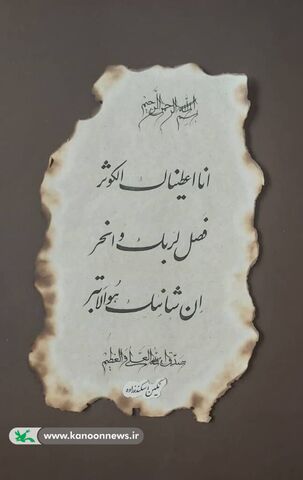 بسم الله الرحمن الرحیم
انا اعطیناك الکوثر
فصل لربك و انحر
اِن شانئك هُوالابتر
صدق الله العلی العظیم
نگین اسکندرزاده
www.kanoonnews.ir